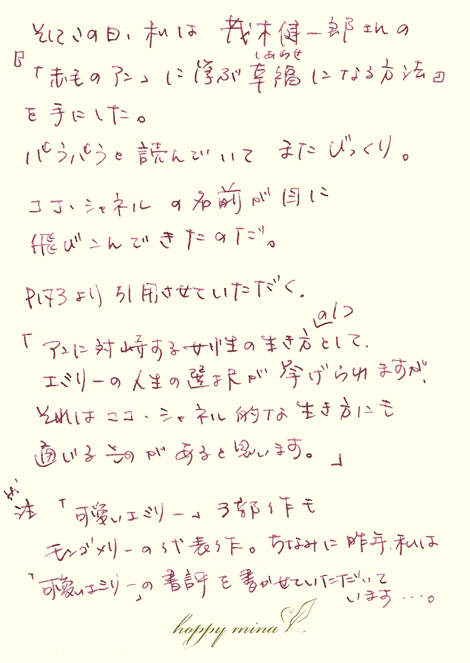 そしてその日、私は 茂木健一郎さんの
『「赤毛のアン」に学ぶ幸福(しあわせ)になる方法』
を手にした。
パラパラと読んでいて またびっくり。
ココ・シャネル の名前が目に
飛びこんできたのだ。
P173より 引用させていただく.
「アンに対峙する女性の生き方の1つとして、
エミリーの人生の選択が 挙げられますが、
それはココ・シャネル的な生き方にも
通じるものがあると思います。」
注 「可愛いエミリー」3部作も
モンゴメリーの代表作。ちなみに昨年、私は
「可愛いエミリー」の書評を書かせていただいて
います…。
happy mina